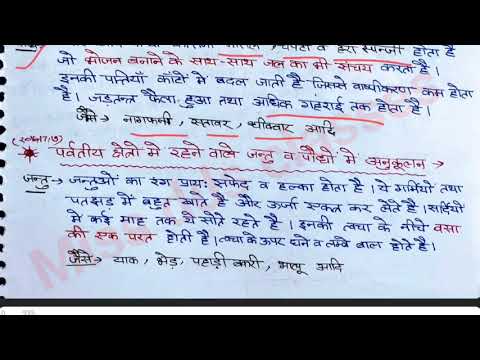 चपटा व हरा स्पन्जी होता है
जो भोजन बनाने के साथ-साथ जल का भी संचय करता है।
इनकी पत्तियाँ काँटों में बदल जाती हैं जिससे वाष्पीकरण कम होता
है। जड़तन्त्र फैला हुआ तथा अधिक गहराई तक होता है।
जैसे → नागफनी, सतावर, आदि
पर्वतीय क्षेत्रों में रहने वाले जन्तु व पौधों में अनुकूलन →
जन्तु → जन्तुओं का रंग प्रायः सफेद व हल्का होता है। ये गर्मियों तथा
पतझड़ में बहुत खाते हैं और ऊर्जा एकत्र कर लेते हैं। सर्दियों
में कई माह तक ये सोते रहते हैं। इनकी त्वचा के नीचे वसा
की एक परत होती है। त्वचा के ऊपर घने व लम्बे बाल होते हैं।
जैसे → याक, भेड़, पहाड़ी बकरी, भालू आदि